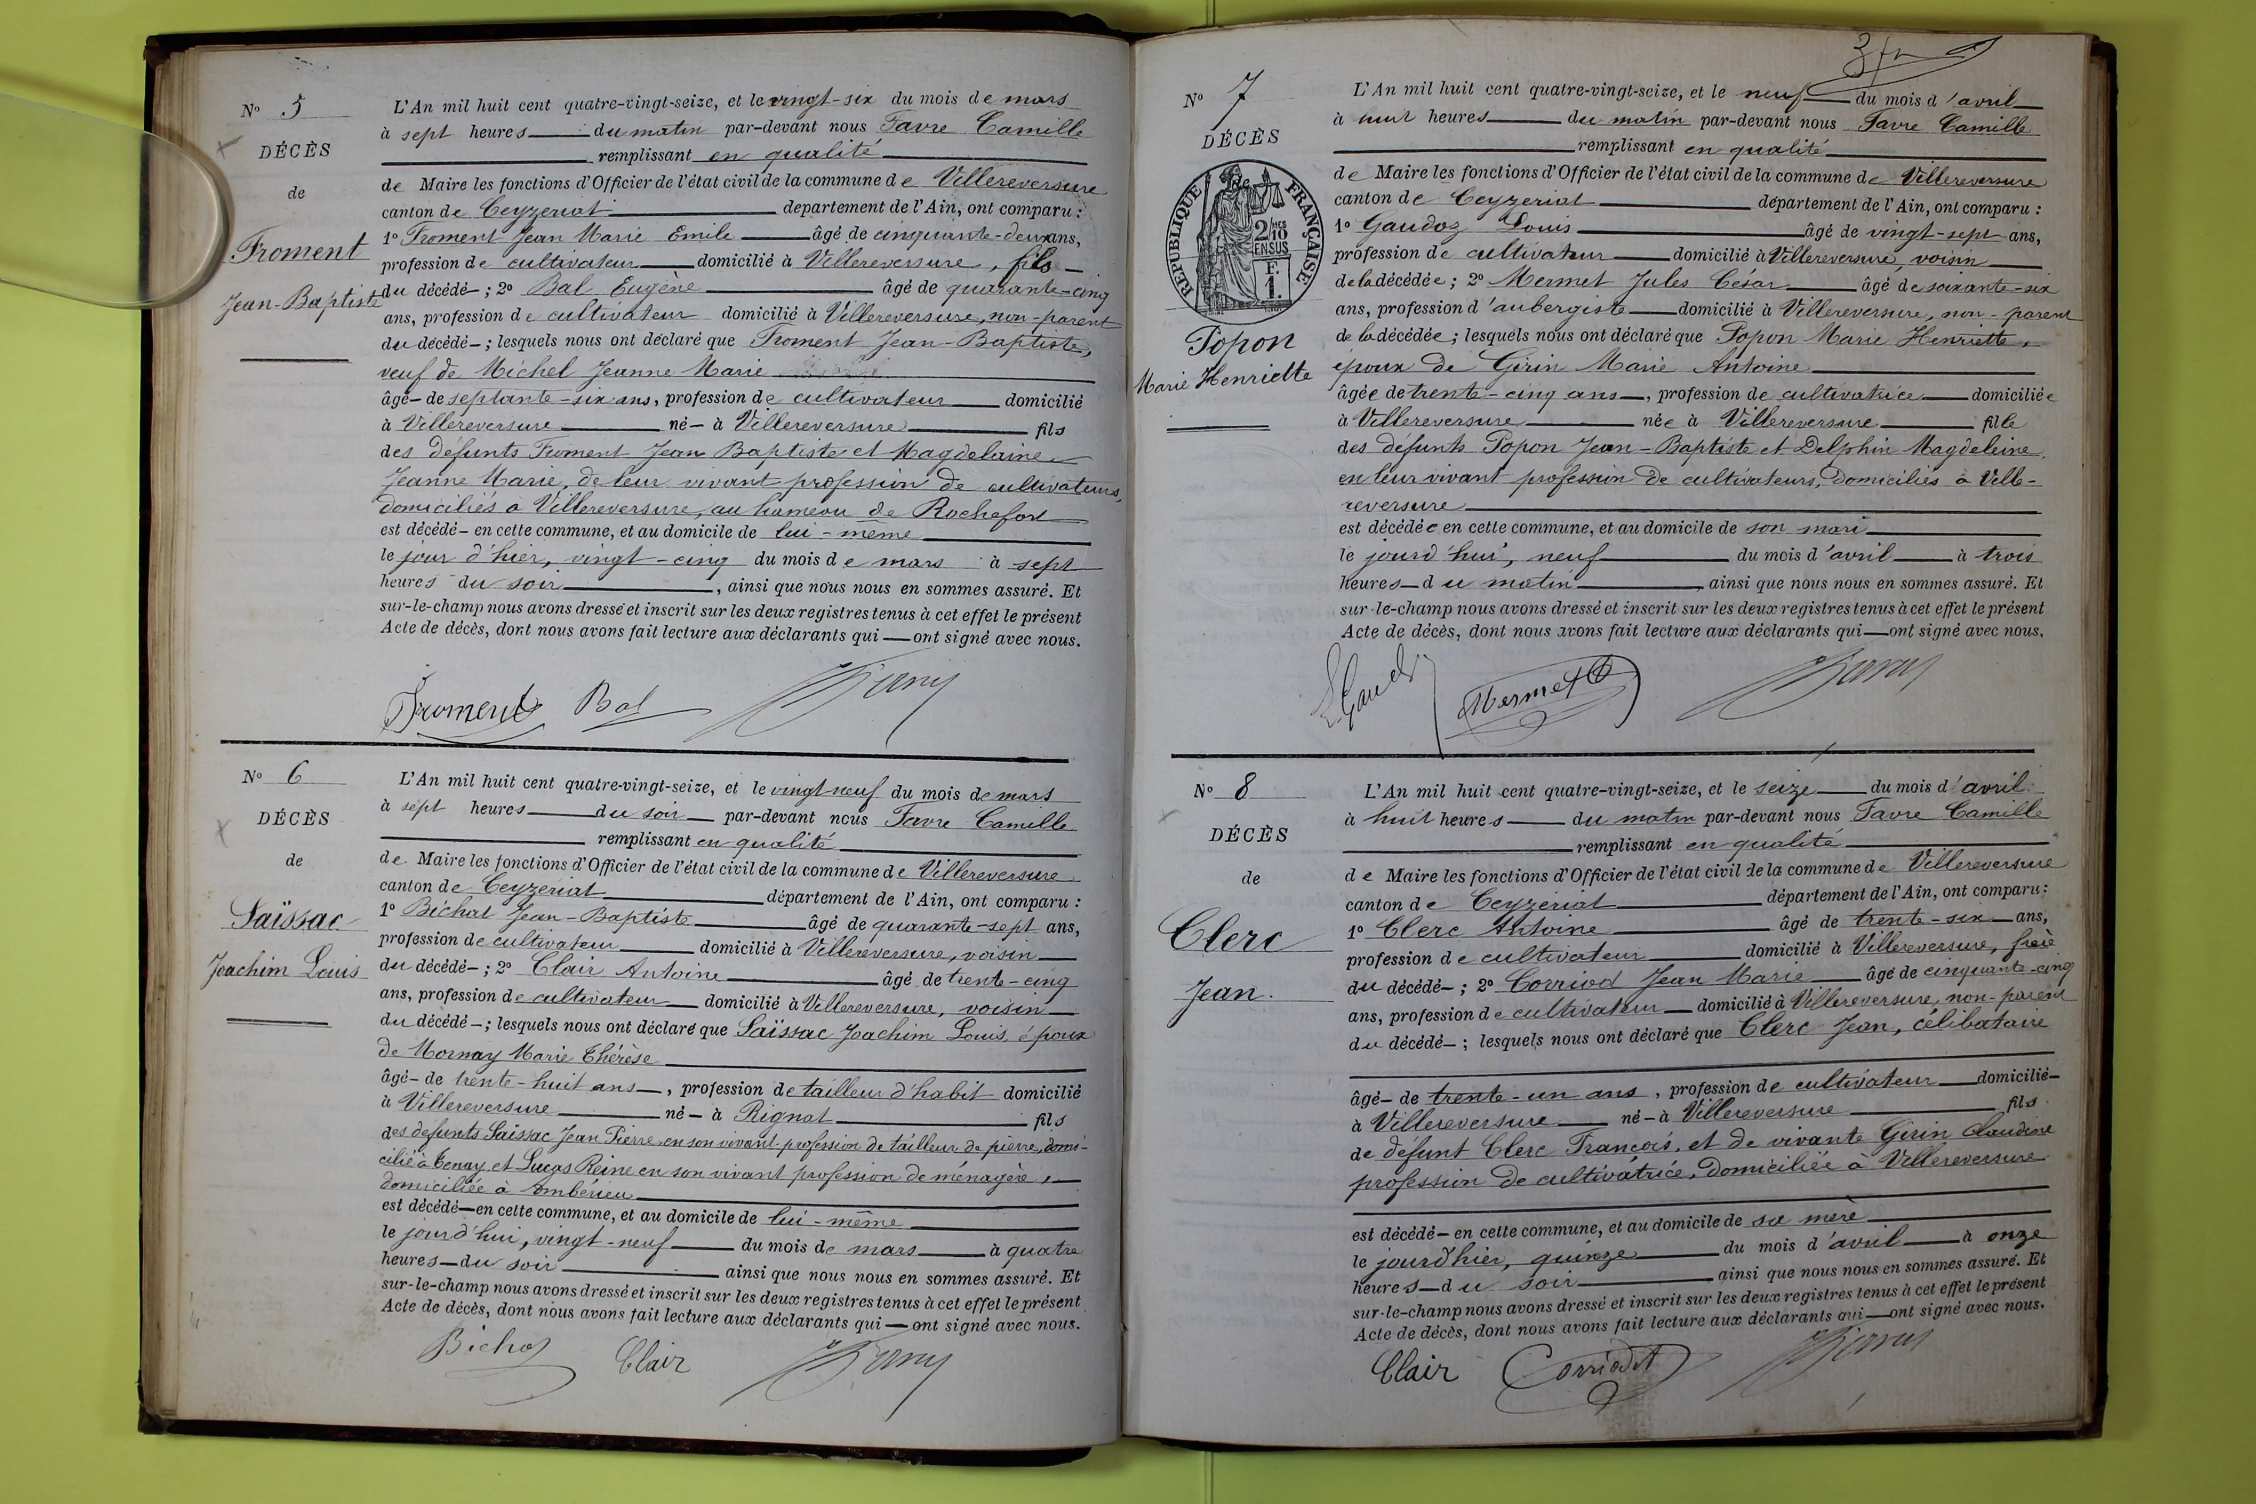 N° 5
DÉCÈS
de
Froment
Jean-Baptiste
L'An mil huit cent quatre-vingt-seize, et le vingt-six du mois de mars
à sept heures du matin par-devant nous Favre Camille
remplissant en qualité
de Maire les fonctions d'Officier de l'état civil de la commune de Villereversure
canton de Ceyzeriat département de l'Ain, ont comparu :
1° Froment Jean Marie Emile âgé de cinquante-deux ans,
profession de cultivateur domicilié à Villereversure, fils
du décédé ; 2° Bal Eugène âgé de quarante-cinq
ans, profession de cultivateur domicilié à Villereversure, non-parent
du décédé ; lesquels nous ont déclaré que Froment Jean-Baptiste,
veuf de Michel Jeanne Marie
âgé de septante-six ans, profession de cultivateur domicilié
à Villereversure né à Villereversure fils
des défunts Froment Jean Baptiste et Magdelaine
Jeanne Marie, de leur vivant profession de cultivateurs,
domiciliés à Villereversure, au hameau de Rochefort
est décédé en cette commune, et au domicile de lui-même
le jour d'hier, vingt-cinq du mois de mars à sept
heures du soir, ainsi que nous nous en sommes assuré. Et
sur-le-champ nous avons dressé et inscrit sur les deux registres tenus à cet effet le présent
Acte de décès, dont nous avons fait lecture aux déclarants qui ont signé avec nous.
Froment Bal
N° 6
DÉCÈS
de
Saïssac
Joachim Louis
L'An mil huit cent quatre-vingt-seize, et le vingt neuf du mois de mars
à sept heures du soir par-devant nous Favre Camille
remplissant en qualité
de Maire les fonctions d'Officier de l'état civil de la commune de Villereversure
canton de Ceyzeriat département de l'Ain, ont comparu :
1° Bichat Jean-Baptiste âgé de quarante-sept ans,
profession de cultivateur domicilié à Villereversure, voisin
du décédé ; 2° Clair Antoine âgé de trente-cinq
ans, profession de cultivateur domicilié à Villereversure, voisin
du décédé ; lesquels nous ont déclaré que Saïssac Joachim Louis époux
de Mornay Marie Thérèse
âgé de trente-huit ans, profession de tailleur d'habit domicilié
à Villereversure né à Rignat fils
des défunts Saïssac Jean Pierre en son vivant profession de tailleur de pierre, domi-
cilié à Tenay et Lucas Reine en son vivant profession de ménagère,
domiciliée à Ambérieu
est décédé en cette commune, et au domicile de lui-même
le jourd'hui, vingt-neuf du mois de mars à quatre
heures du soir ainsi que nous nous en sommes assuré. Et
sur-le-champ nous avons dressé et inscrit sur les deux registres tenus à cet effet le présent
Acte de décès, dont nous avons fait lecture aux déclarants qui ont signé avec nous.
Bichat Clair
N° 7
DÉCÈS
de
RÉPUBLIQUE FRANÇAISE
2/10 MES
EN SUS
F.
1.
Popon
Marie Henriette
L'An mil huit cent quatre-vingt-seize, et le neuf du mois d'avril
à huit heures du matin par-devant nous Favre Camille
remplissant en qualité
de Maire les fonctions d'Officier de l'état civil de la commune de Villereversure
canton de Ceyzeriat département de l'Ain, ont comparu :
1° Gaudoz Louis âgé de vingt-sept ans,
profession de cultivateur domicilié à Villereversure, voisin
de la décédée ; 2° Mermet Jules César âgé de soixante-six
ans, profession d'aubergiste domicilié à Villereversure, non-parent
de la décédée ; lesquels nous ont déclaré que Popon Marie Henriette,
époux de Girin Marie Antoine
âgée de trente-cinq ans, profession de cultivatrice domiciliée
à Villereversure née à Villereversure fille
des défunts Popon Jean-Baptiste et Delphin Magdeleine
en leur vivant profession de cultivateurs, domiciliés à Ville-
reversure
est décédée en cette commune, et au domicile de son mari
le jourd'hui, neuf du mois d'avril à trois
heures du matin, ainsi que nous nous en sommes assuré. Et
sur-le-champ nous avons dressé et inscrit sur les deux registres tenus à cet effet le présent
Acte de décès, dont nous avons fait lecture aux déclarants qui ont signé avec nous.
Mermet
N° 8
DÉCÈS
de
Clerc
Jean.
L'An mil huit cent quatre-vingt-seize, et le seize du mois d'avril
à huit heures du matin par-devant nous Favre Camille
remplissant en qualité
de Maire les fonctions d'Officier de l'état civil de la commune de Villereversure
canton de Ceyzeriat département de l'Ain, ont comparu :
1° Clerc Antoine âgé de trente-six ans,
profession de cultivateur domicilié à Villereversure, frère
du décédé ; 2° Corriod Jean Marie âgé de cinquante-cinq
ans, profession de cultivateur domicilié à Villereversure, non-parent
du décédé ; lesquels nous ont déclaré que Clerc Jean, célibataire
âgé de trente-un ans, profession de cultivateur domicilié
à Villereversure né à Villereversure fils
de défunt Clerc François, et de vivante Girin Claudine
profession de cultivatrice, domiciliée à Villereversure
est décédé en cette commune, et au domicile de sa mère
le jourd'hier, quinze du mois d'avril à onze
heures du soir ainsi que nous nous en sommes assuré. Et
sur-le-champ nous avons dressé et inscrit sur les deux registres tenus à cet effet le présent
Acte de décès, dont nous avons fait lecture aux déclarants qui ont signé avec nous.
Clair Corriod